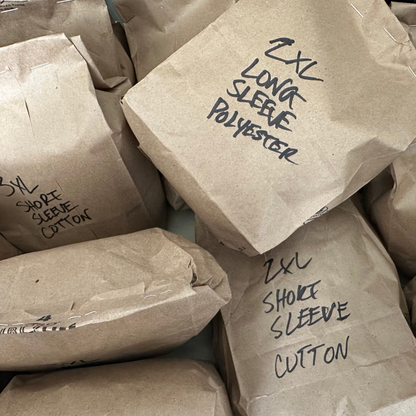 2XL
LONG
SLEEVE
POLYESTER
3XL
SHORT
SLEEVE
COTTON
2XL
SHORT
SLEEVE
COTTON